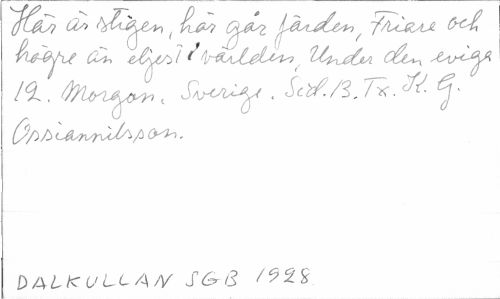 Här är stigen, här går färden, Friare och
högre än eljest i världen, Under den eviga
12. Morgon, Sverige. Sid. 13. Tx. K. G.
Ossiannilsson.
DALKULLAN SGB 1928